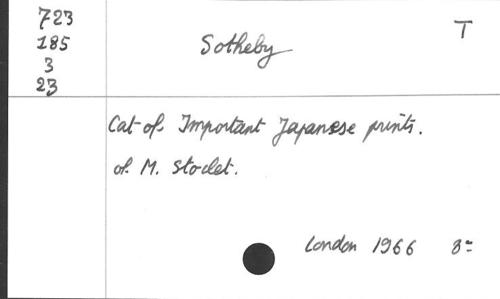 723
185
3
23
Sotheby
T
Cat of Important Japanese prints.
of M. Stoclet.
London 1966 8=